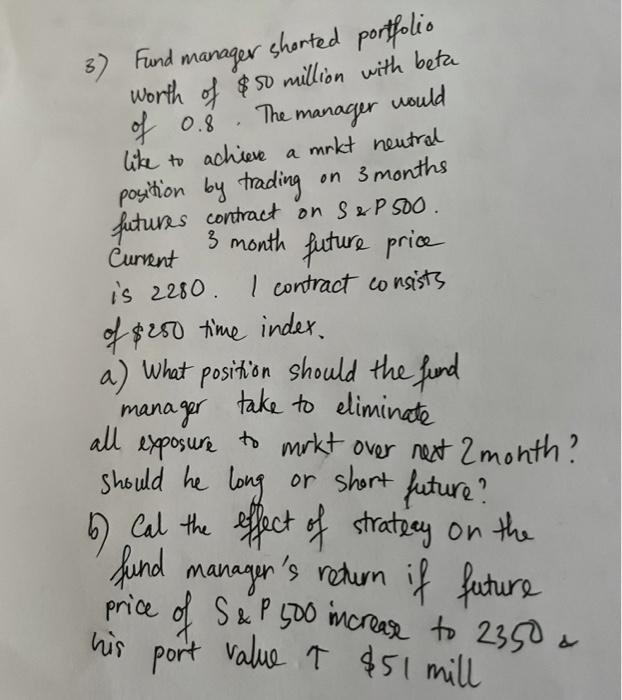 3) Fund manager shorted portfolio
worth of $50 million with beta
of 0.8. The manager would
like to achieve a mrkt neutral
position by trading on 3 months
futures contract on S&P 500.
Current 3 month future price
is 2280. 1 contract consists
of $250 time index.
a) What position should the fund
manager take to eliminate
all exposure to mrkt over next 2 month?
should he long or short future?
b) Cal the effect of strategy on the
fund manager's return if future
price of S&P 500 increase to 2350 &
his port value ↑ $51 mill